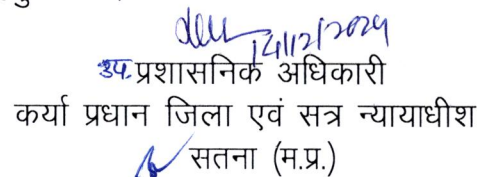 14/12/2024
उप. प्रशासनिक अधिकारी
कर्या प्रधान जिला एवं सत्र न्यायाधीश
सतना (म.प्र.)